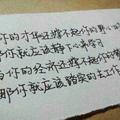 你的才华还撑不起你的野心
那你就应该静下心来学习
当你的经济还撑不起你的梦
那你就应该踏实的去工作